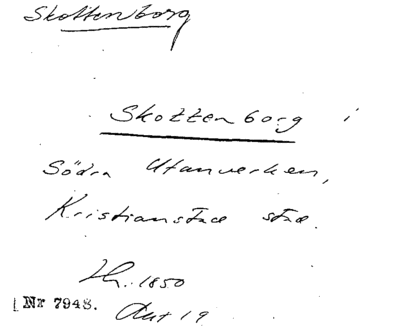 Skottenborg
Skottenborg i
Södra Utanverken,
Kristianstad stad.
1850
Nr 7948.
19